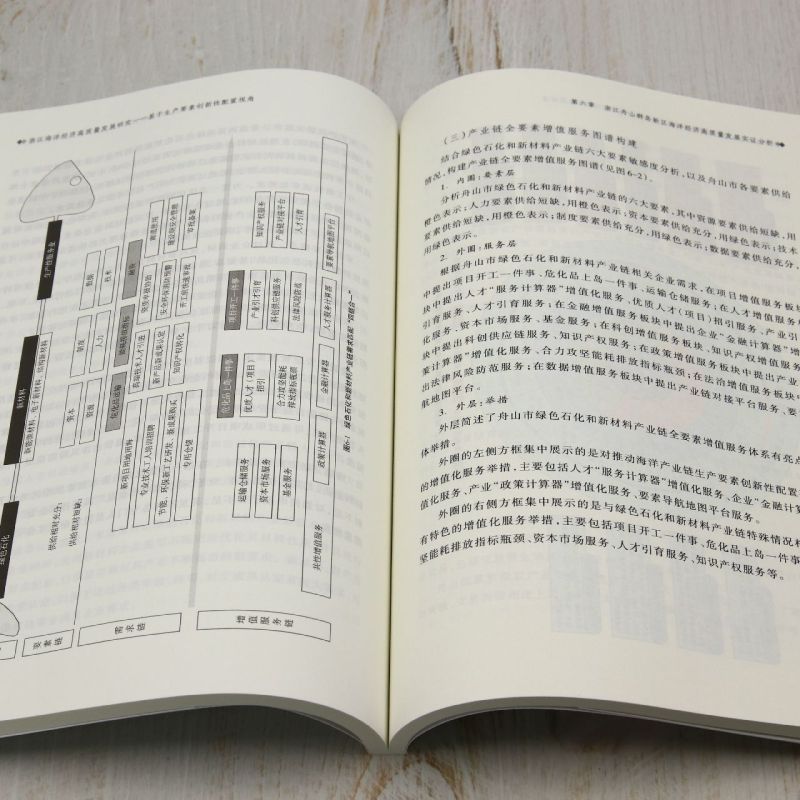 浙江海洋经济高质量发展研究——基于生产要素创新性配置视角
绿色石化
新材料
新能源材料、电子新材料、高端新材料
生产性服务业
供给相对充分：
供给相对短缺：
资本
制度
数据
资源
人力
技术
要素链
危化品运输
能耗高能指标
融资
新项目审地用海
高端技术人才引进
资质中标协助
专业技术工人培训招聘
新产品新成果认定
安全环保消防预警
建设期安全管理
节能、环保新工艺研发、新成果购买
知识产权转化
开工前快速审批
审批备案
专用仓储
需求链
危化品上岛一件事
项目开工一件事
运输仓储服务
优质人才（项目）招引
产业引才引育
知识产权服务
资本市场服务
科创供应链服务
产业链对接平台
基金服务
合力攻坚能耗排放指标瓶颈
法律风险防范
人才引育
共性增值服务
政策计算器
金融计算器
人才服务计算器
要素导航地图平台
增值服务链
图6-1 绿色石化和新材料产业链需求匹配“四链合一”
第六章 浙江舟山群岛新区海洋经济高质量发展实证分析
（三）产业链全要素增值服务图谱构建
结合绿色石化和新材料产业链六大要素敏感度分析，以及舟山市各要素供给
情况，构建产业链全要素增值服务图谱（见图6-2）。
1. 内圈：要素层
分析舟山市绿色石化和新材料产业链的六大要素，其中资源要素供给短缺，用
橙色表示；人力要素供给短缺，用橙色表示；资本要素供给充分，用绿色表示；技术
要素供给短缺，用橙色表示；制度要素供给充分，用绿色表示；数据要素供给充分，
用绿色表示。
2. 外圈：服务层
根据舟山市绿色石化和新材料产业链相关企业需求，在项目增值服务板块
中提出项目开工一件事、危化品上岛一件事、运输仓储服务；在人才增值服务板
块中提出人才“服务计算器”增值化服务、优质人才（项目）招引服务、产业引才
引育服务、人才引育服务；在金融增值服务板块中提出企业“金融计算器”增值
化服务、资本市场服务、基金服务；在科创增值服务板块、知识产权增值服务板
块中提出科创供应链服务、知识产权服务；在政策增值服务板块中提出产业“政
策计算器”增值化服务、合力攻坚能耗排放指标瓶颈；在法治增值服务板块中提
出法律风险防范服务；在数据增值服务板块中提出产业链对接平台服务、要素导
航地图平台。
3. 外层：举措
外层简述了舟山市绿色石化和新材料产业链全要素增值服务体系有亮点
体举措。
外圈的左侧方框集中展示的是对推动海洋产业链生产要素创新性配置
的增值化服务举措，主要包括人才“服务计算器”增值化服务、企业“金融计算
值化服务、产业“政策计算器”增值化服务、要素导航地图平台服务。
外圈的右侧方框集中展示的是与绿色石化和新材料产业链特殊情况
有特色的增值化服务举措，主要包括项目开工一件事、危化品上岛一件事
坚能耗排放指标瓶颈、资本市场服务、人才引育服务、知识产权服务等。